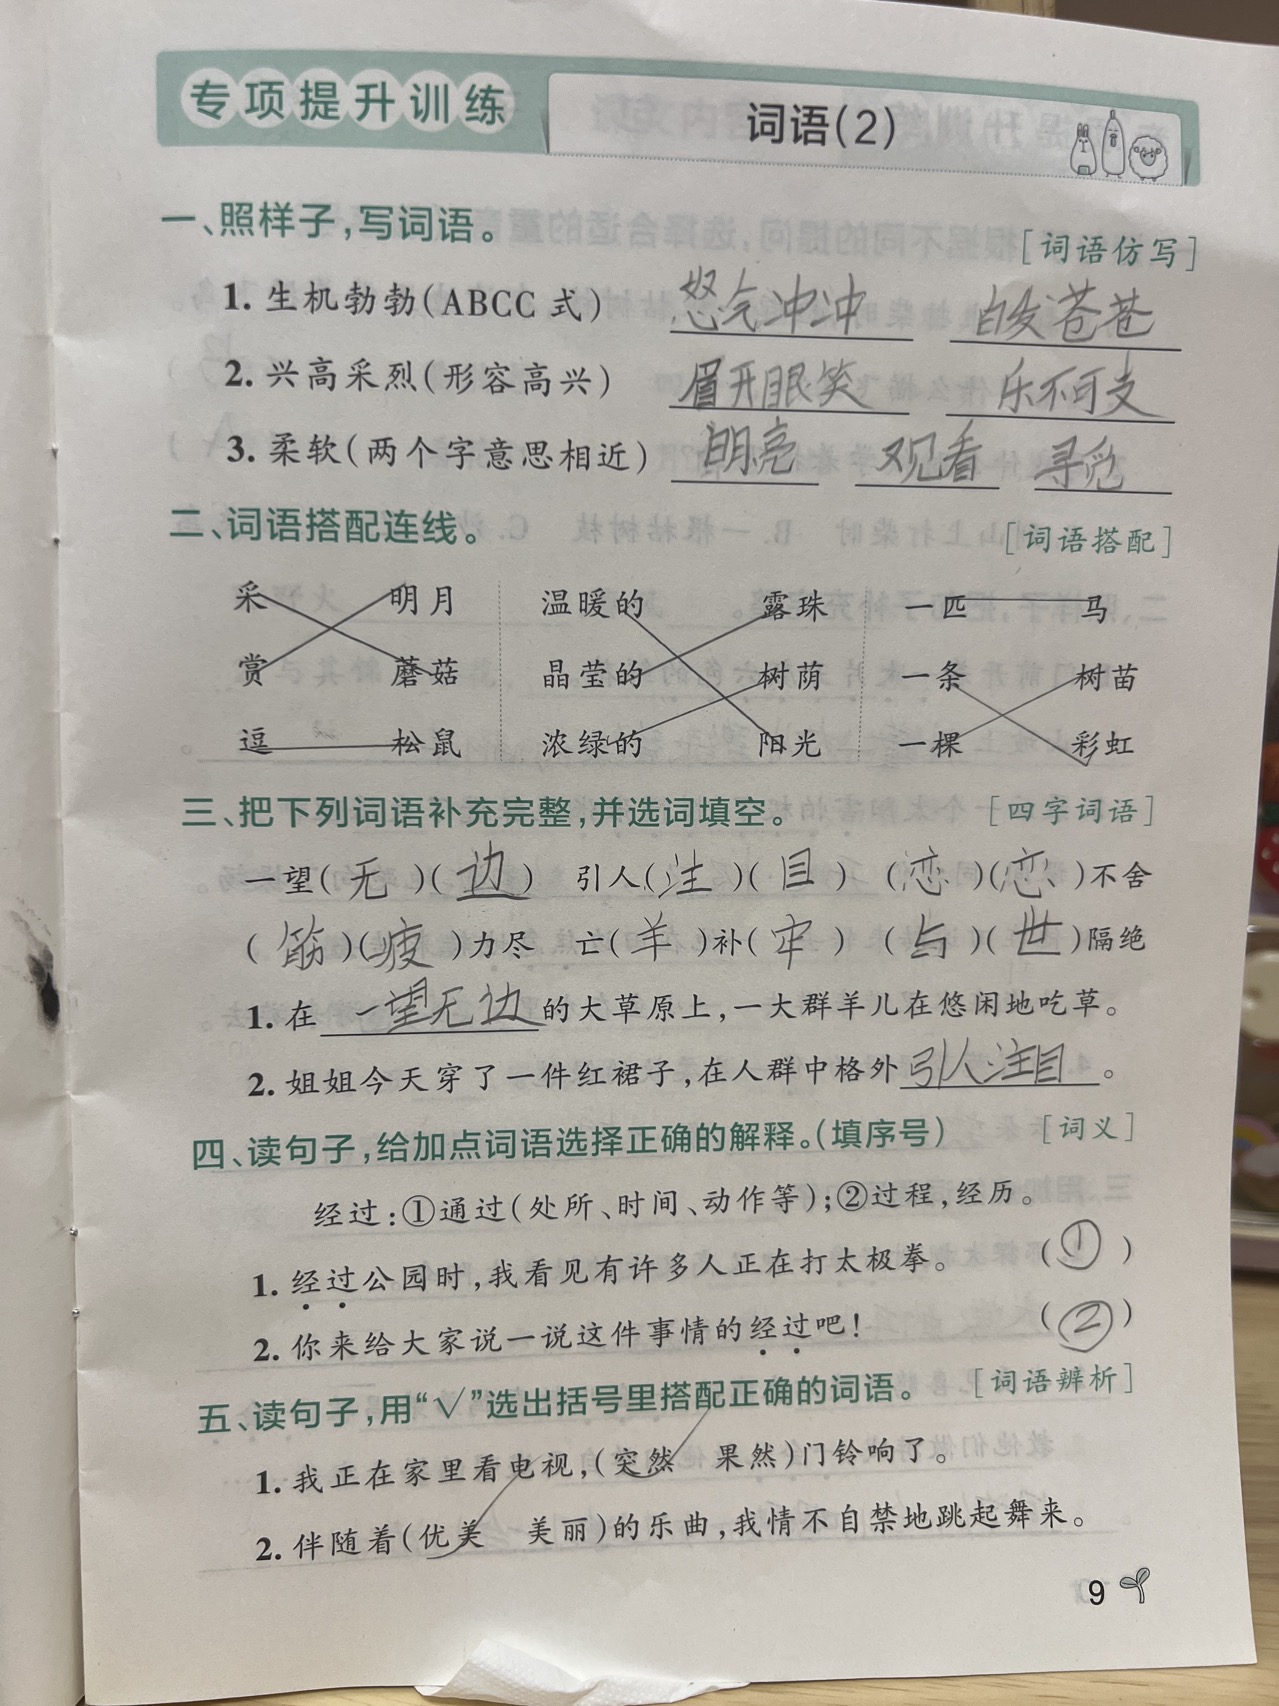 专项提升训练 词语(2)
一、照样子,写词语。 [词语仿写]
1. 生机勃勃(ABCC 式) 怒气冲冲 白发苍苍
2. 兴高采烈(形容高兴) 眉开眼笑 乐不可支
3. 柔软(两个字意思相近) 明亮 观看 寻觅
二、词语搭配连线。 [词语搭配]
采 明月 温暖的 露珠 一匹 马
赏 蘑菇 晶莹的 树荫 一条 树苗
逗 松鼠 浓绿的 阳光 一棵 彩虹
三、把下列词语补充完整,并选词填空。 [四字词语]
一望(无)(边) 引人(注)(目) (恋)(恋)不舍
(筋)(疲)力尽 亡(羊)补(牢) (与)(世)隔绝
1. 在一望无边的大草原上,一大群羊儿在悠闲地吃草。
2. 姐姐今天穿了一件红裙子,在人群中格外引人注目。
四、读句子,给加点词语选择正确的解释。(填序号) [词义]
经过:①通过(处所、时间、动作等);②过程,经历。
1. 经过公园时,我看见有许多人正在打太极拳。 (①)
2. 你来给大家说一说这件事情的经过吧! (②)
五、读句子,用“√”选出括号里搭配正确的词语。 [词语辨析]
1. 我正在家里看电视,(突然 果然)门铃响了。
2. 伴随着(优美 美丽)的乐曲,我情不自禁地跳起舞来。
9